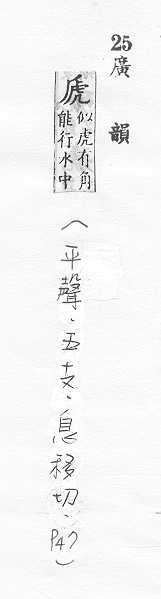 25 廣韻
虒 似虎有角
能行水中
(平聲、五支、息移切、P47)